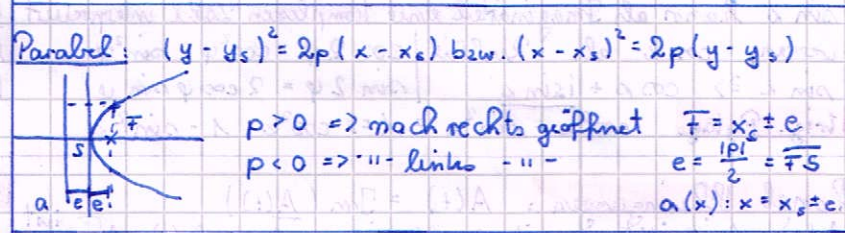 Parabel: (y - ys)² = 2p(x - xs) bzw. (x - xs)² = 2p(y - ys)
F
S
a e e
p > 0 => nach rechts geöffnet
p < 0 => -"- links -"-
F = xs ± e
e = |p|/2 = FS
a(x): x = xs ± e